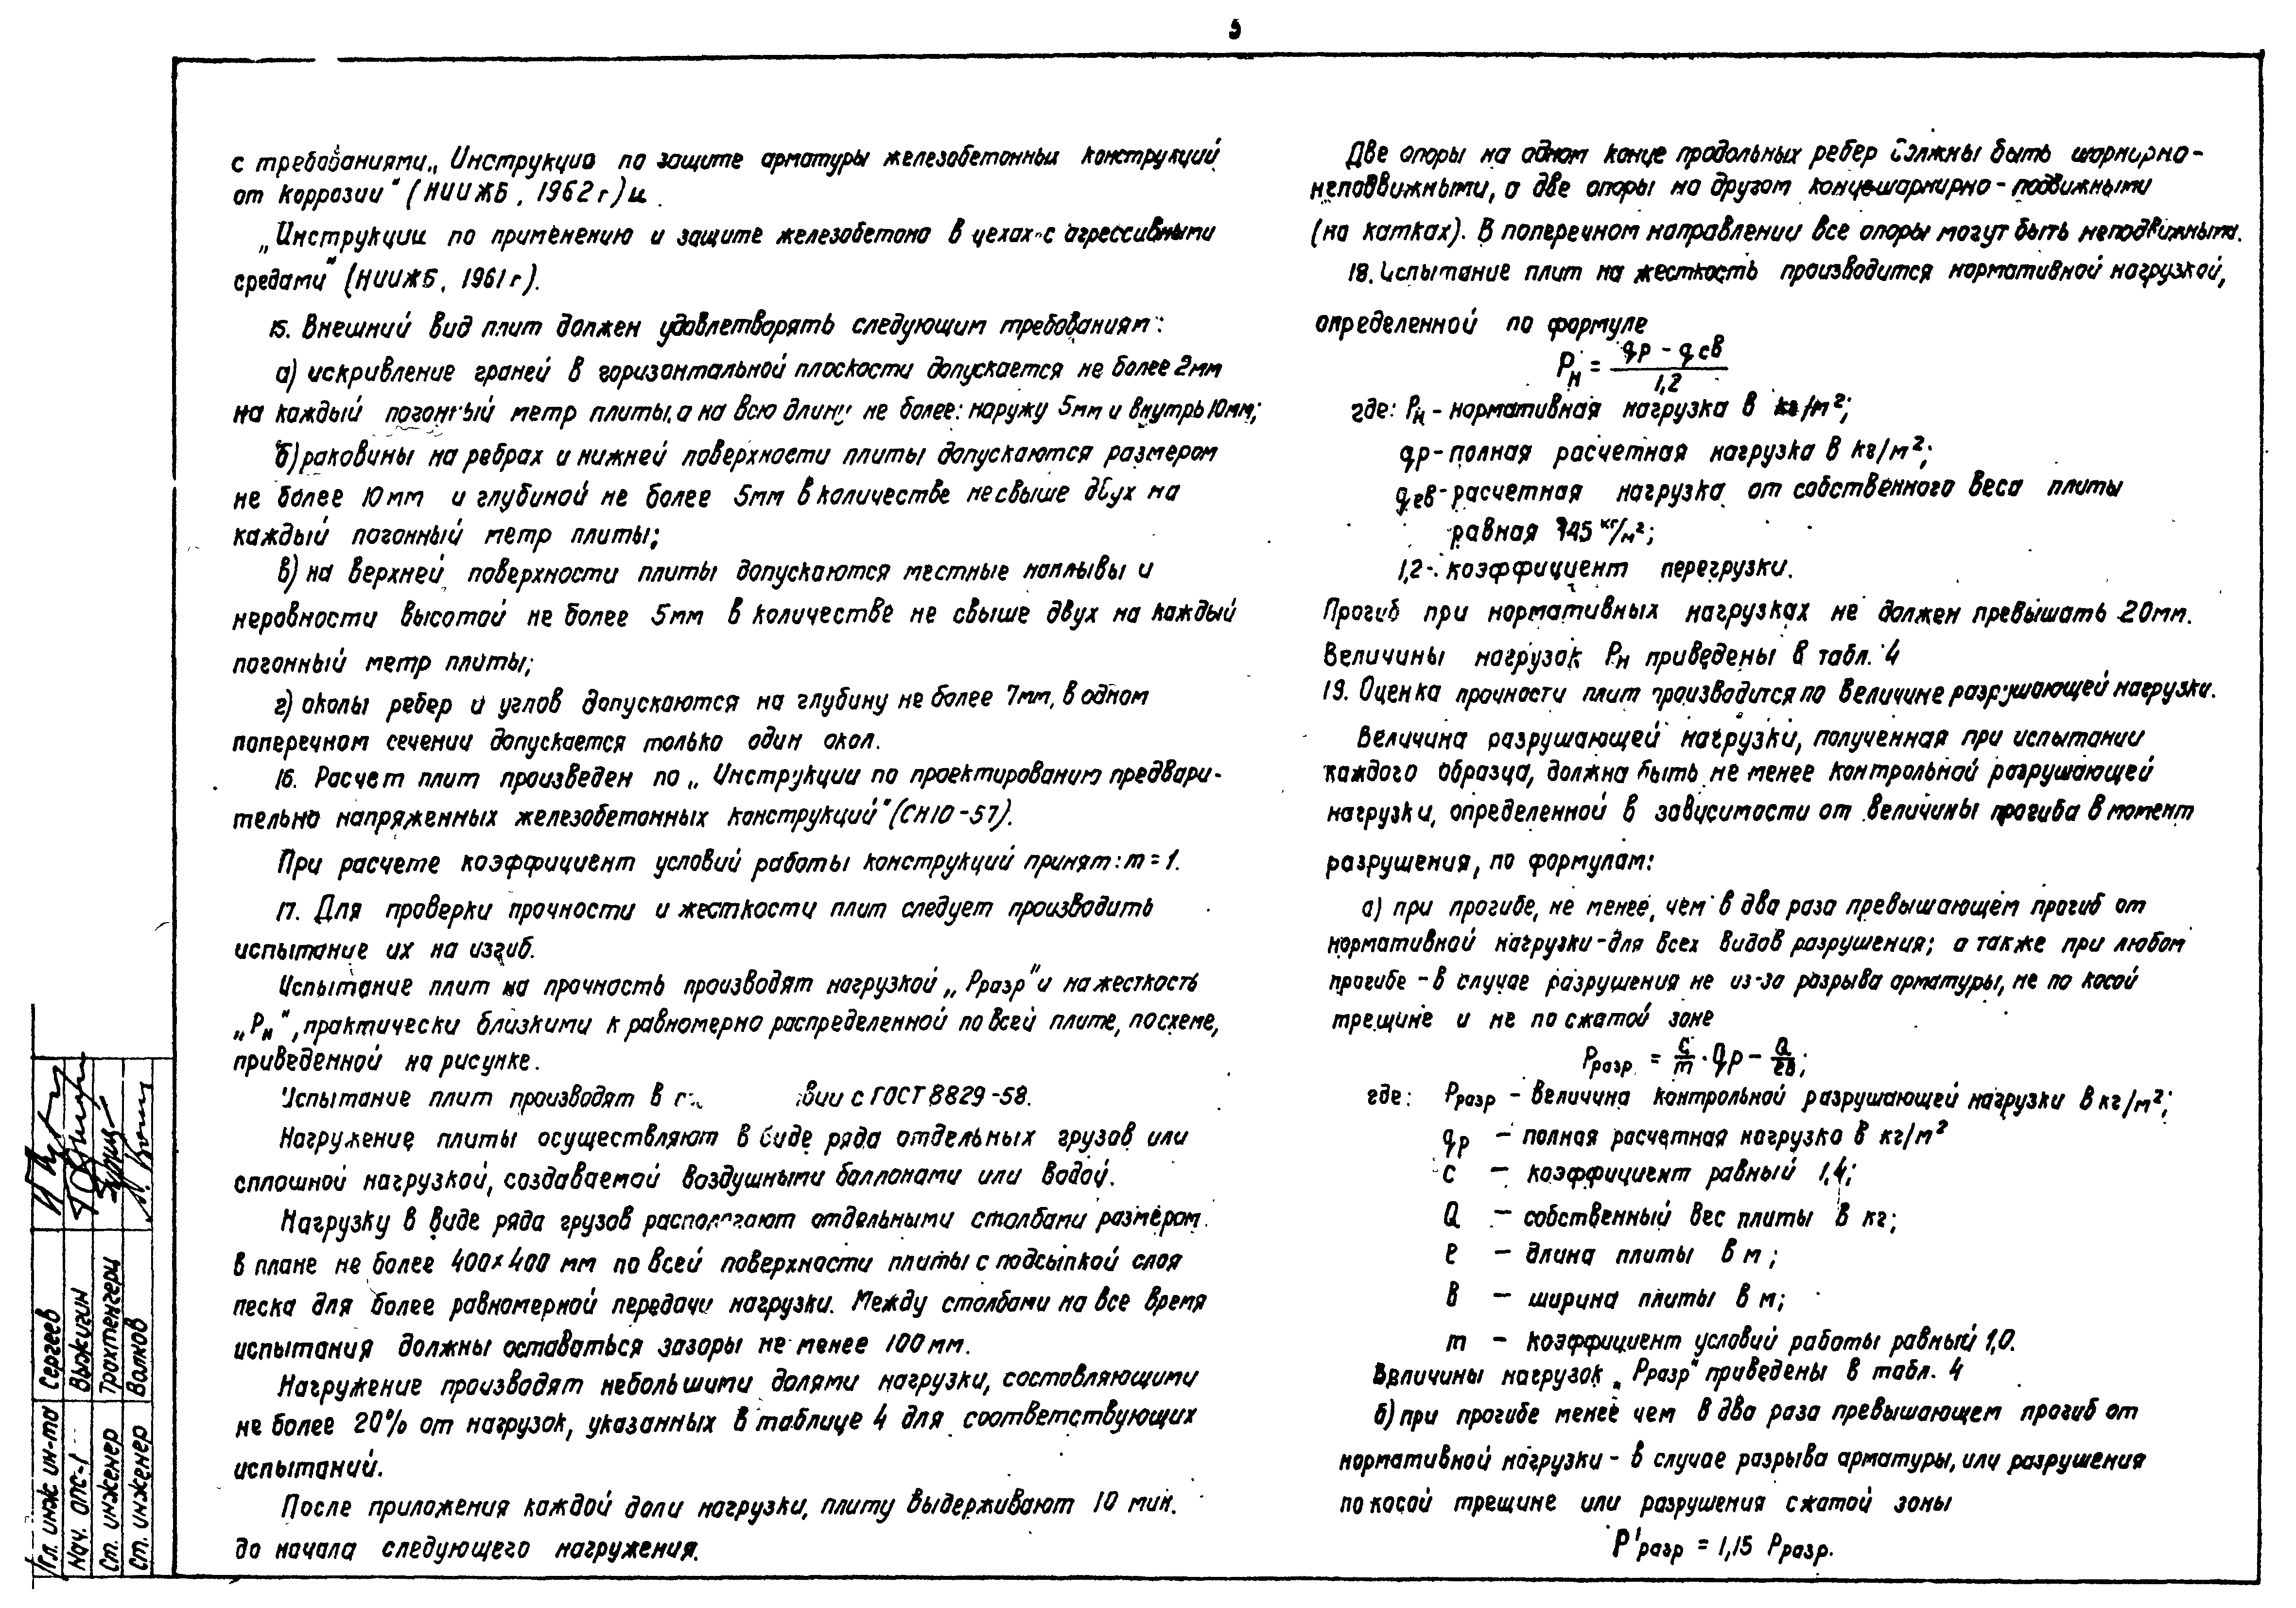 9
с требованиями „Инструкции по защите арматуры железобетонных конструкций
от коррозии" (НИИЖБ, 1962г) и
„Инструкции по применению и защите железобетона в цехах с агрессивными
средами" (НИИЖБ, 1961г).
15. Внешний вид плит должен удовлетворять следующим требованиям:
а) искривление граней в горизонтальной плоскости допускается не более 2мм
на каждый погонный метр плиты, а на всю длину не более: наружу 5мм и внутрь 10мм;
б) раковины на ребрах и нижней поверхности плиты допускаются размером
не более 10мм и глубиной не более 5мм в количестве не свыше двух на
каждый погонный метр плиты;
в) на верхней поверхности плиты допускаются местные наплывы и
неровности высотой не более 5мм в количестве не свыше двух на каждый
погонный метр плиты;
г) околы ребер и углов допускаются на глубину не более 7мм, в одном
поперечном сечении допускается только один окол.
16. Расчет плит произведен по „Инструкции по проектированию предвари-
тельно напряженных железобетонных конструкций" (СН10-57).
При расчете коэффициент условий работы конструкций принят: m = 1.
17. Для проверки прочности и жесткости плит следует производить
испытание их на изгиб.
Испытание плит на прочность производят нагрузкой „Рразр" и на жесткость
„Рн", практически близкими к равномерно распределенной по всей плите, по схеме,
приведенной на рисунке.
Испытание плит производят в вии с ГОСТ 8829-58.
Нагружение плиты осуществляют в виде ряда отдельных грузов или
сплошной нагрузкой, создаваемой воздушными баллонами или водой.
Нагрузку в виде ряда грузов располагают отдельными столбами размером
в плане не более 400×400 мм по всей поверхности плиты с подсыпкой слоя
песка для более равномерной передачи нагрузки. Между столбами на все время
испытания должны оставаться зазоры не менее 100мм.
Нагружение производят небольшими долями нагрузки, составляющими
не более 20% от нагрузок, указанных в таблице 4 для соответствующих
испытаний.
После приложения каждой доли нагрузки, плиту выдерживают 10 мин.
до начала следующего нагружения.
Две опоры на одном конце продольных ребер должны быть шарнирно-
неподвижными, а две опоры на другом конце шарнирно-подвижными
(на катках). В поперечном направлении все опоры могут быть неподвижными.
18. Испытание плит на жесткость производится нормативной нагрузкой,
определенной по формуле
Рн = (qр - qсв) / 1,2
где: Рн - нормативная нагрузка в кг/м²;
qр - полная расчетная нагрузка в кг/м²;
qсв - расчетная нагрузка от собственного веса плиты
равная 145 кг/м²;
1,2 - коэффициент перегрузки.
Прогиб при нормативных нагрузках не должен превышать 20мм.
Величины нагрузок Рн приведены в табл. 4
19. Оценка прочности плит производится по величине разрушающей нагрузки.
Величина разрушающей нагрузки, полученная при испытании
каждого образца, должна быть не менее контрольной разрушающей
нагрузки, определенной в зависимости от величины прогиба в момент
разрушения, по формулам:
а) при прогибе, не менее, чем в два раза превышающем прогиб от
нормативной нагрузки - для всех видов разрушения; а также при любом
прогибе - в случае разрушения не из-за разрыва арматуры, не по косой
трещине и не по сжатой зоне
Рразр = c/m · qр - Q/ℓв;
где: Рразр - величина контрольной разрушающей нагрузки в кг/м²;
qр - полная расчетная нагрузка в кг/м²
с - коэффициент равный 1,4;
Q - собственный вес плиты в кг;
ℓ - длина плиты в м;
в - ширина плиты в м;
m - коэффициент условий работы равный 1,0.
Величины нагрузок „Рразр" приведены в табл. 4
б) при прогибе менее чем в два раза превышающем прогиб от
нормативной нагрузки - в случае разрыва арматуры, или разрушения
по косой трещине или разрушения сжатой зоны
Р'разр = 1,15 Рразр.
Гл. инж ин-та Сергеев
Нач. ОПС-1 Выжигин
Ст. инженер Трохтенгерц
Ст. инженер Валков